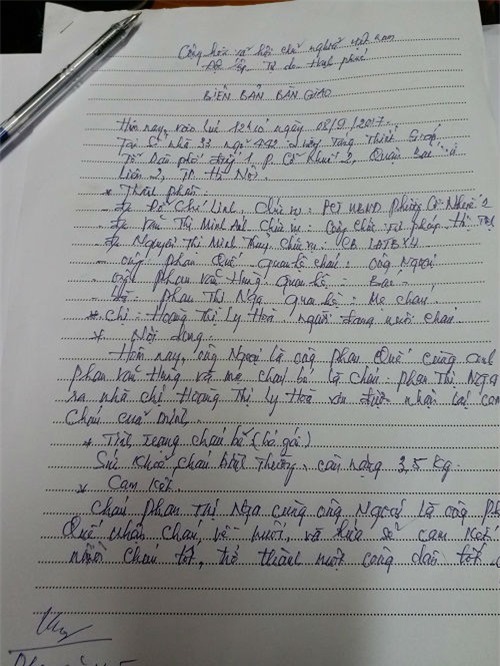 Cộng hòa xã hội chủ nghĩa việt nam
Độc lập Tự do Hạnh phúc
BIÊN BẢN BÀN GIAO
Hôm nay, vào lúc 12h10 ngày 08/9/2017.
Tại Số nhà 33 ngõ 492 đường
Tổ Dân phố 1, P. Cổ Nhuế 2, Quận Bắc
Liêm 2, TP Hà Nội.
* Thành phần:
- Đ/c Đỗ Chí Linh, Chức vụ: PCT UBND Phường Cổ Nhuế 2
- Đ/c Văn Thị Minh Anh, Chức vụ: Công chức Tư pháp hộ tịch
- Đ/c Nguyễn Thị Minh Thuý, Chức vụ: CB LĐTBXH
- Ông Phan Quế quan hệ cháu: Ông Ngoại
- Ông Phan Văn Hùng quan hệ: Bác
- Phan Thị Nga quan hệ: Mẹ cháu.
* Chị: Hoàng Thị Ly Hoa. người đang nuôi cháu
* Nội dung.
Hôm nay, ông Ngoại là ông Phan Quế cùng anh
Phan Văn Hùng và mẹ cháu bé là cháu: Phan Thị Nga
ra nhà chị Hoàng Thị Ly Hoa xin được nhận lại con
cháu của mình.
* Tình trạng cháu bé (bé gái)
Sức khoẻ cháu bình thường, cân nặng 3,5 kg.
* Cam kết
Cháu Phan Thị Nga cùng ông Ngoại là ông Ph
Quế nhận cháu về nuôi, và hứa sẽ cam kết
nuôi cháu tốt, trở thành một công dân tốt